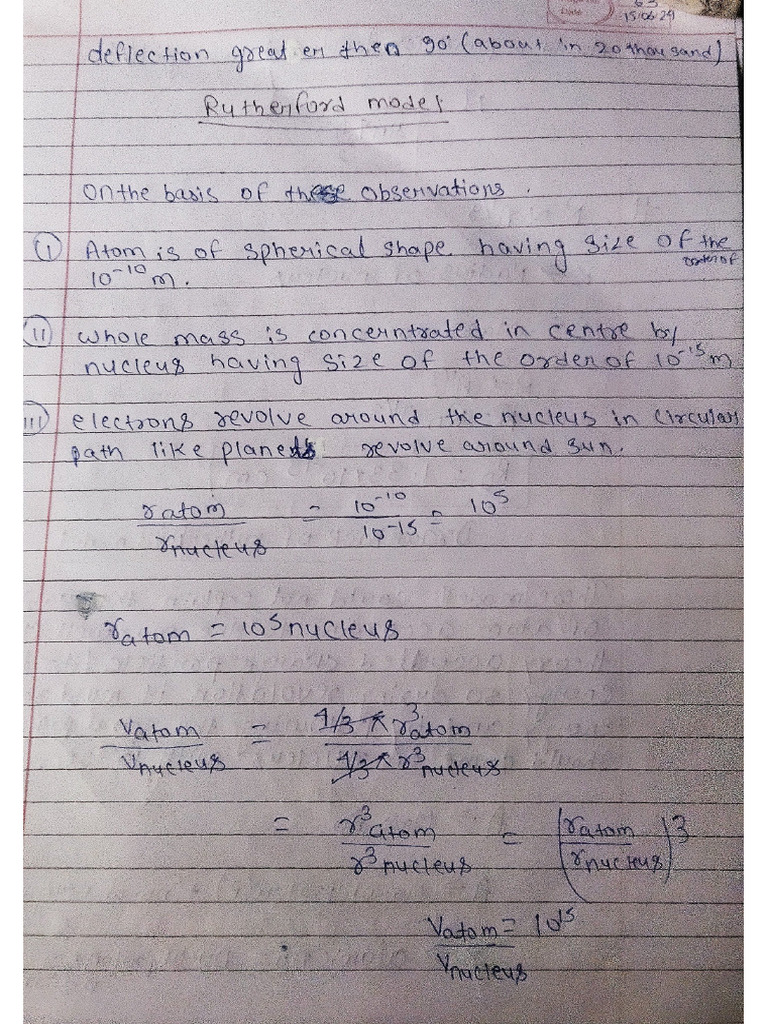 Date
15/06/24
deflection great er then 90° (about in 20 thousand)
Rutherford model
on the basis of these observations.
(i) Atom is of spherical shape having size of the
order of
10⁻¹⁰ m.
(ii) whole mass is concerntrated in centre by
nucleus having size of the order of 10⁻¹⁵ m
(iii) electrons revolve around the nucleus in circular
path like planets revolve around sun.
r atom / r nucleus = 10⁻¹⁰ / 10⁻¹⁵ = 10⁵
r atom = 10⁵ nucleus
V atom / V nucleus = 4/3 π r³ atom / 4/3 π r³ nucleus
= r³ atom / r³ nucleus = (r atom / r nucleus)³
V atom / V nucleus = 10¹⁵